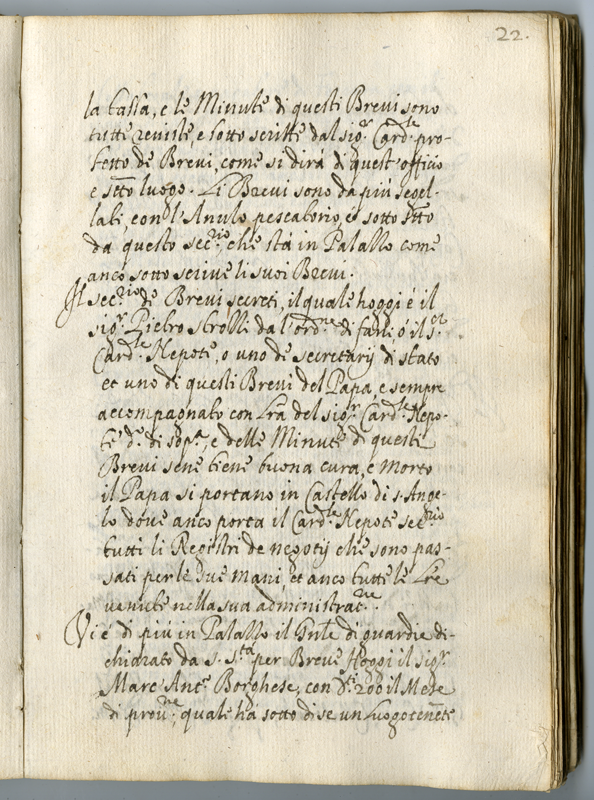 22.
la tassa, e le Minute di questi Brevi sono
tutte reviste, e sotto scritte dal sig.r Card.le pro-
fetto de Brevi, come si dirà di quest'officio
e s.tto luogo. Li Brevi sono da più segel-
lati, con l'Anulo pescatorio, et sotto s.tto
da questo sec.rio, che stà in Palazzo come
anco sotto scrive li suoi Brevi.
Il sec.rio de Brevi secreti, il quale hoggi é il
sig.r Pietro strozzi da l'ord.ne di farli, ó il s.r
Card.le Nepote, o uno de secretarij di stato
et uno di questi Brevi del Papa e sempre
accompagnato con Lra del sig.r Card.le Nepo-
te d.o di sop.a, e delle Minute di questi
Brevi sene tiene buona cura, e morto
il Papa si portano in Castello di s. Ange-
lo dove anco porta il Card.le Nepote sec.rio
tutti li Registri de negotij che sono pas-
sati per le sue mani, et anco tutte le Lre
venute nella sua administrat.ne.
Vi é di più in Palazzo il Gnle di guardie di-
chiarato da s. s.tà per Breve hoggi il sig.r
Marc'Ant.o Borghese, con ∇.ti 200 il Mese
di prov.ne, quale há sotto di se un Luogotenẽte